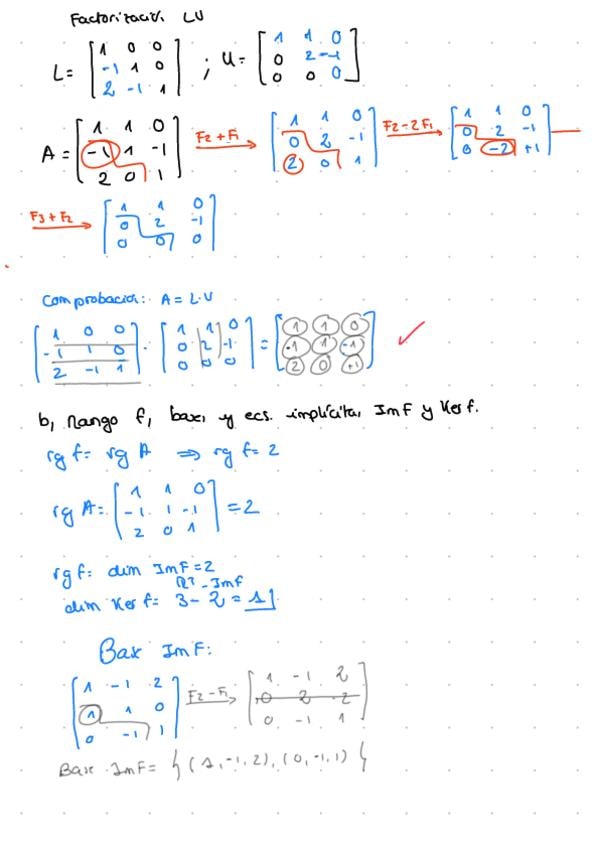 Factorización LU
L = [1 0 0; -1 1 0; 2 -1 1] ; U = [1 1 0; 0 2 -1; 0 0 0]
A = [1 1 0; -1 1 -1; 2 0 1] F2 + F1 → [1 1 0; 0 2 -1; 2 0 1] F2 - 2F1 → [1 1 0; 0 2 -1; 0 -2 +1]
F3 + F2 → [1 1 0; 0 2 -1; 0 0 0]
Comprobación: A = L·U
[1 0 0; -1 1 0; 2 -1 1] · [1 1 0; 0 2 -1; 0 0 0] = [1 1 0; -1 1 -1; 2 0 +1] ✓
b, Rango f, base, y ecs. implícitas Im F y Ker f.
rg f = rg A ⇒ rg f = 2
rg A = [1 1 0; -1 1 -1; 2 0 1] = 2
rg f = dim Im F = 2
R3 - Im f
dim Ker f = 3 - 2 = 1
Base Im F:
[1 -1 2; 1 1 0; 0 -1 1] F2 - F1 → [1 -1 2; 0 2 -2; 0 -1 1]
Base Im F = { (1, -1, 2), (0, -1, 1) }